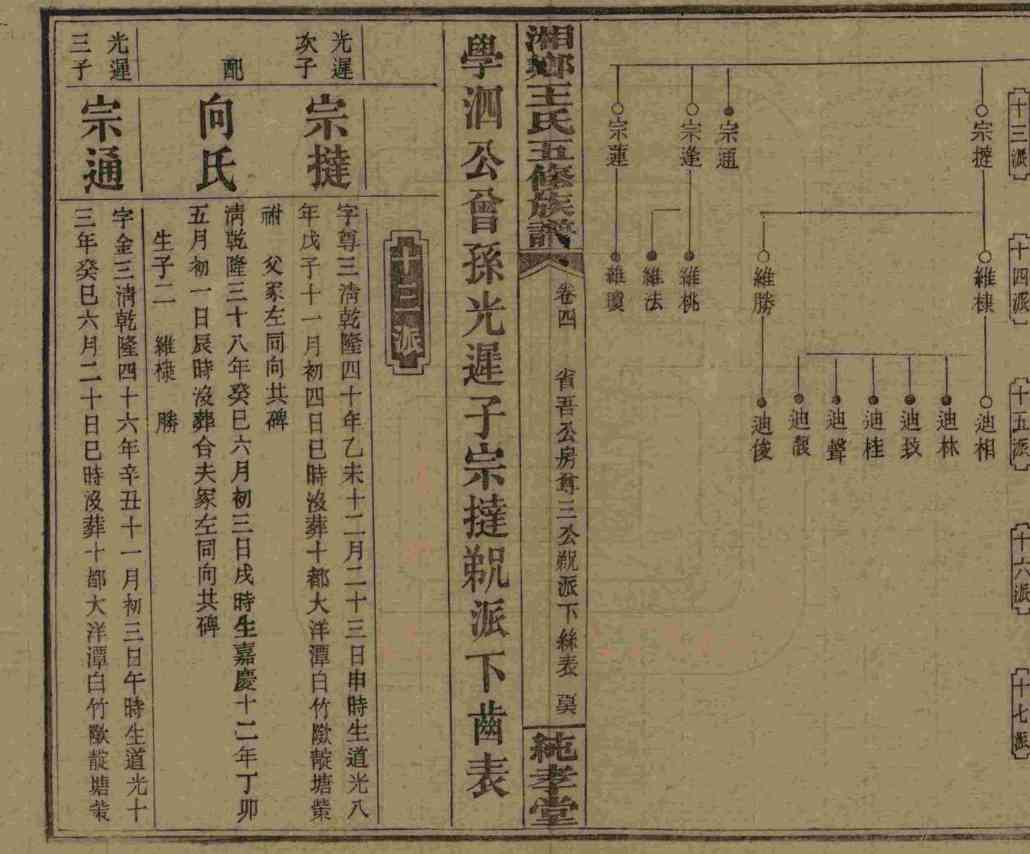 十三派
十四派
十五派
十六派
十七派
宗撻
宗通
宗逢
宗蓮
維棣
維勝
維桃
維法
維瓊
迪相
迪林
迪致
迪桂
迪聲
迪靚
迪俊
湘鄉王氏五修族譜
卷四 省吾公房尊三公䚯派下絲表
純孝堂
學泗公曾孫光遲子宗撻䚯派下齒表
十三派
光遲
次子
宗撻
字尊三清乾隆四十年乙未十二月二十三日申時生道光八
年戊子十一月初四日巳時沒葬十都大洋潭白竹墩靛塘塋
祔 父冢左同向共碑
配
向氏
清乾隆三十八年癸巳六月初三日戌時生嘉慶十二年丁卯
五月初一日辰時沒葬合夫冢左同向共碑
生子二 維棣 勝
光遲
三子
宗通
字金三清乾隆四十六年辛丑十一月初三日午時生道光十
三年癸巳六月二十日巳時沒葬十都大洋潭白竹墩靛塘塋